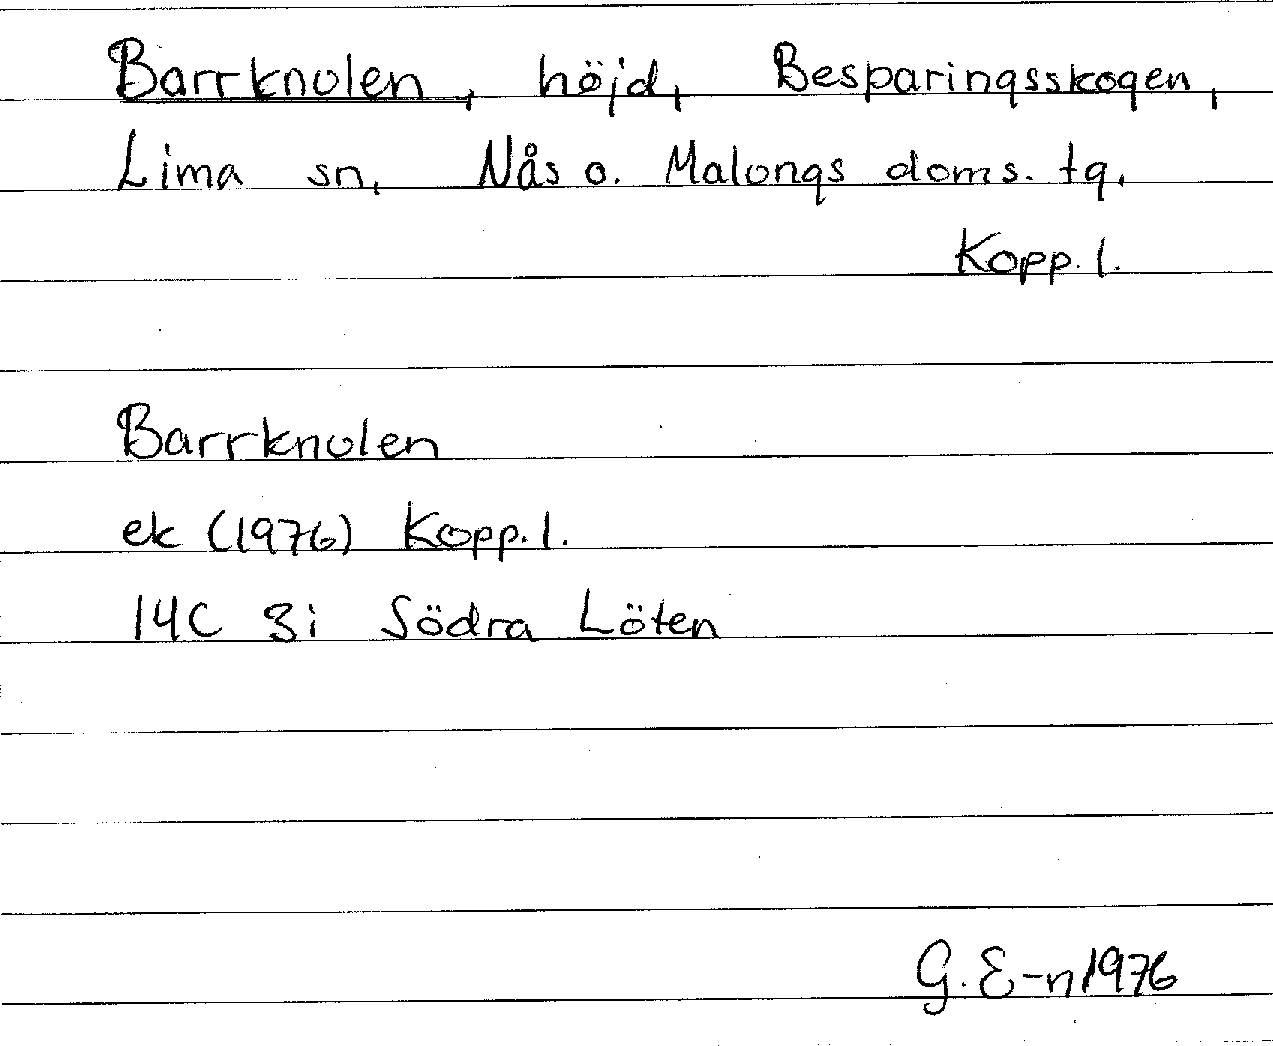 Barrknulen, höjd, Besparingsskogen,
Lima sn, Nås o. Malungs doms. tg.
Kopp. l.
Barrknulen
ek (1976) Kopp. l.
14C 3i Södra Löten
G. E-n 1976